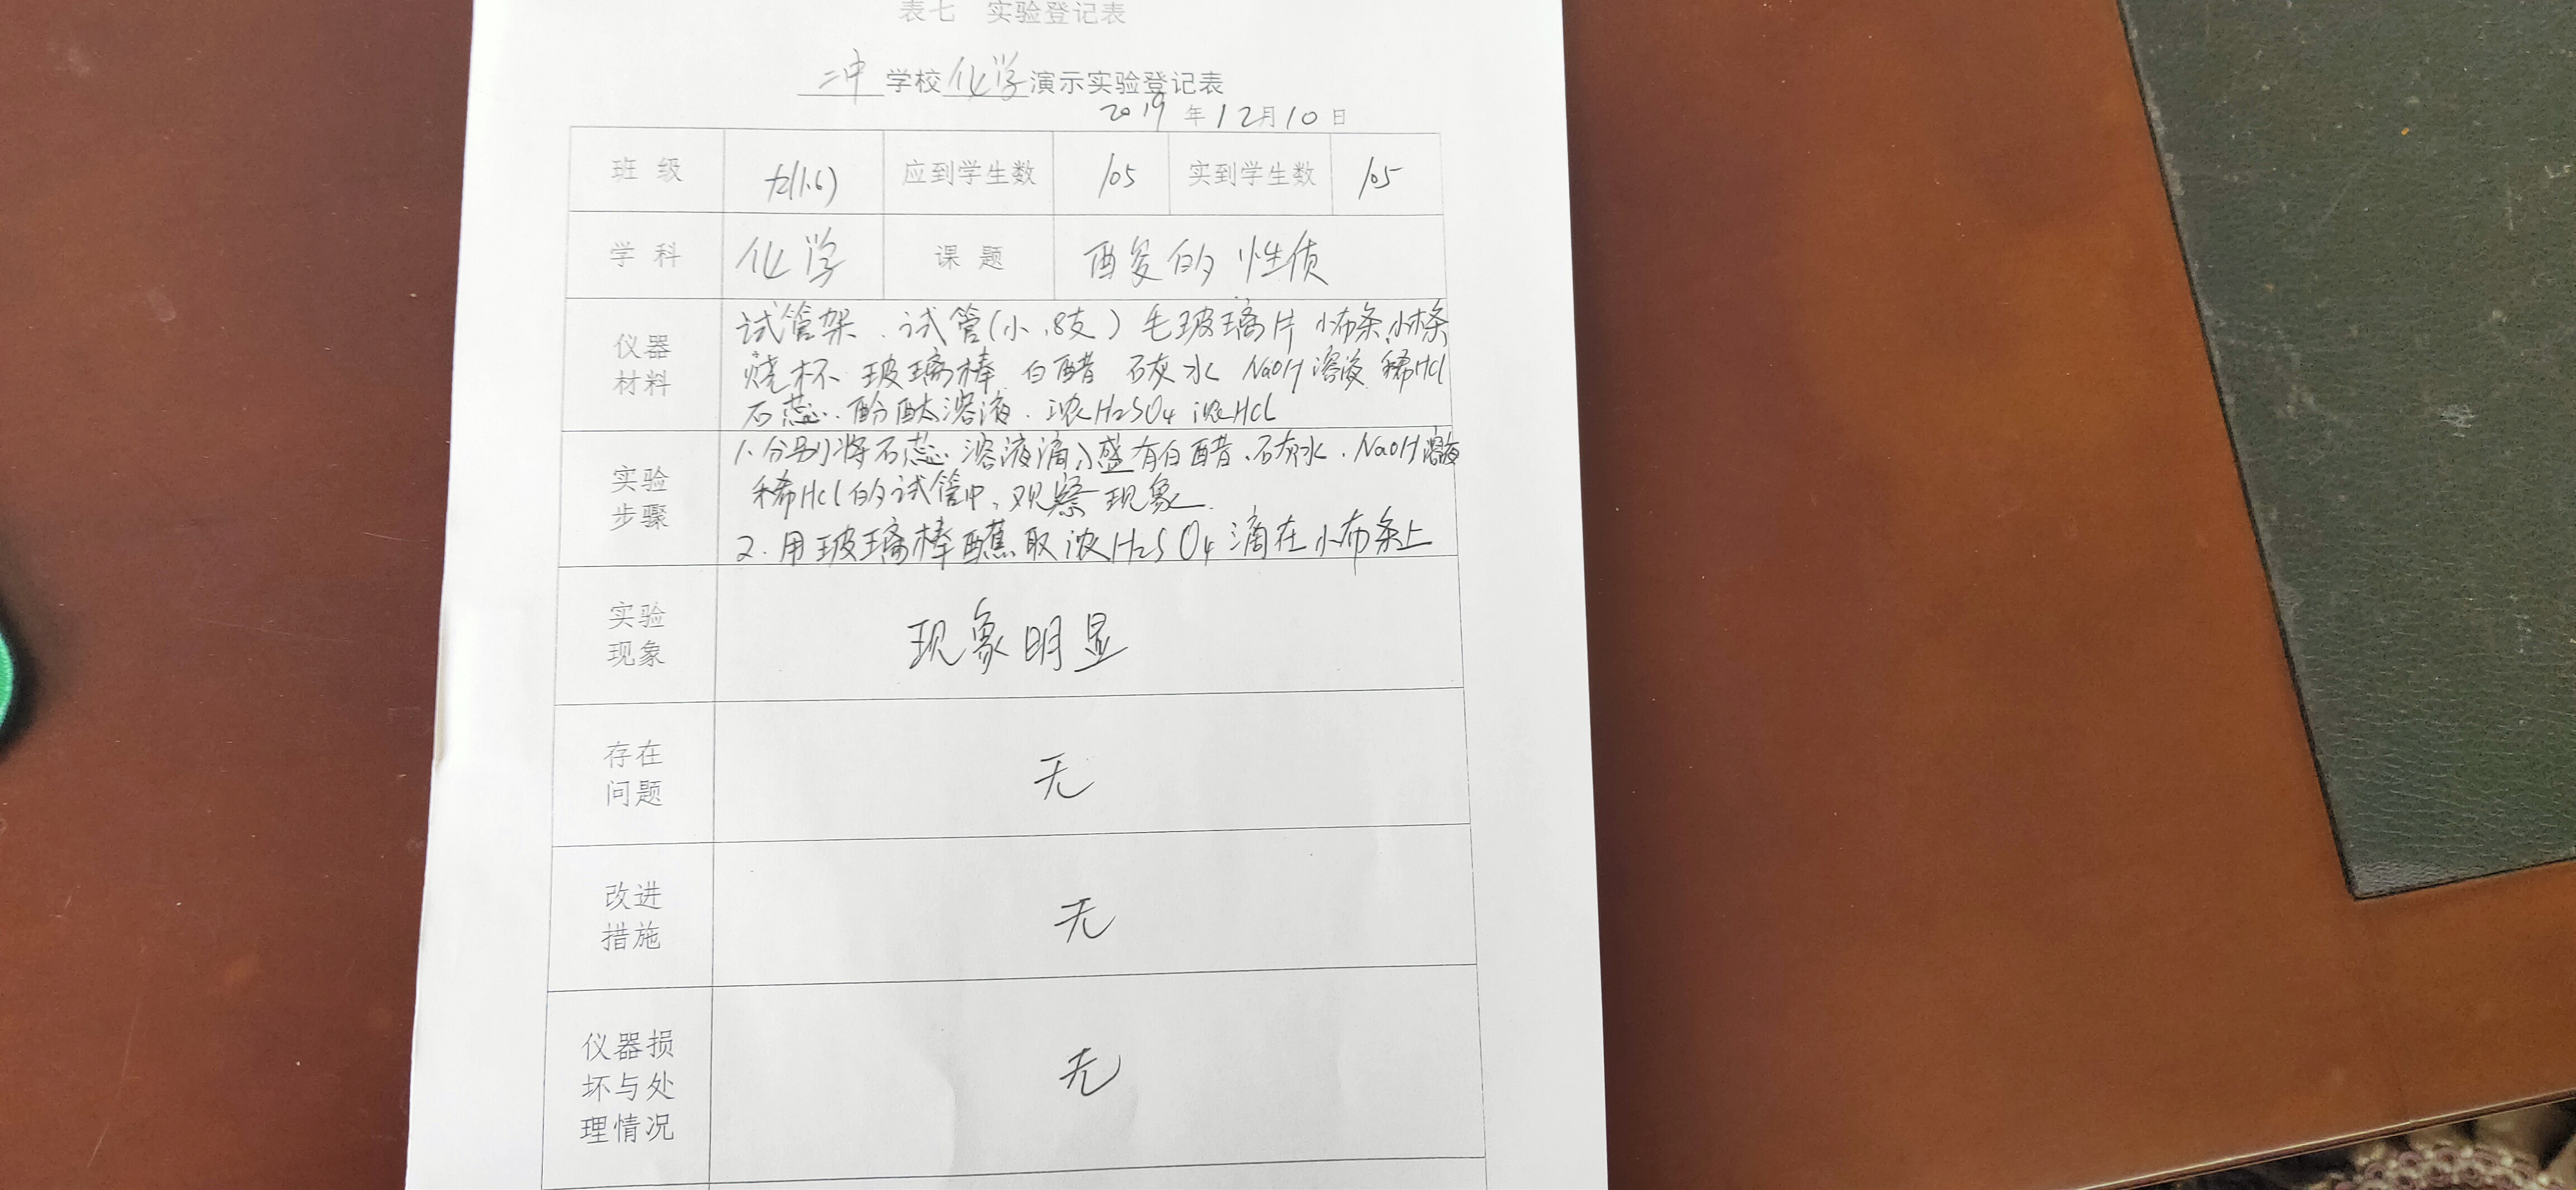 表七 实验登记表
二中 学校 化学 演示实验登记表
2019 年 12 月 10 日
班 级 九(1.6) 应到学生数 105 实到学生数 105
学 科 化学 课 题 酸的性质
仪器材料 试管架、试管(小、8支) 毛玻璃片 小布条 小木条
烧杯 玻璃棒 白醋 石灰水 NaOH溶液 稀HCl
石蕊、酚酞溶液、浓H2SO4 浓HCl
实验步骤 1、分别将石蕊溶液滴入盛有白醋、石灰水、NaOH溶液
稀HCl的试管中,观察现象.
2.用玻璃棒蘸取浓H2SO4滴在小布条上
实验现象 现象明显
存在问题 无
改进措施 无
仪器损坏与处理情况 无